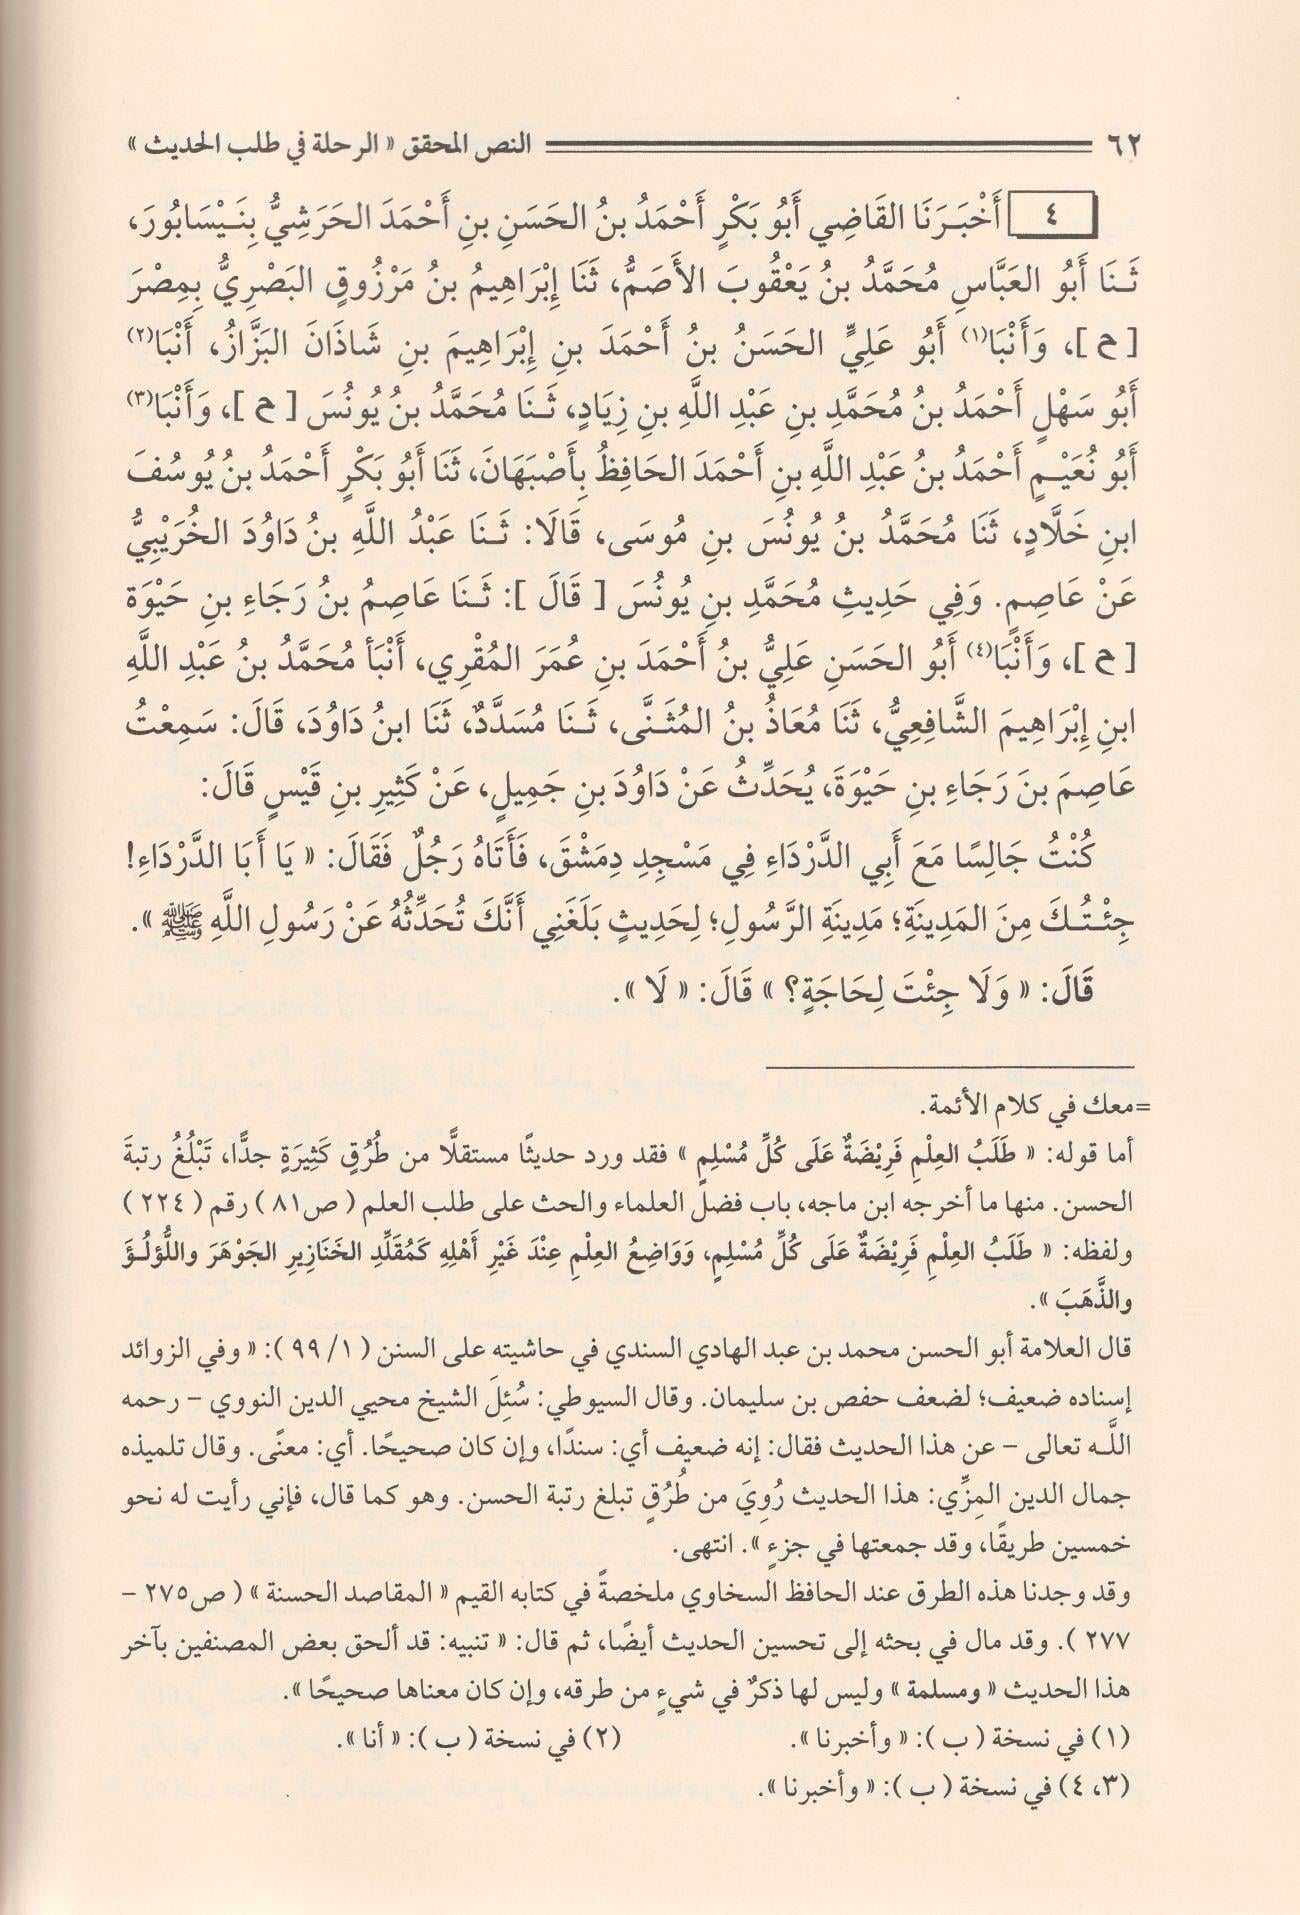 ٦٢ النص المحقق « الرحلة في طلب الحديث »
٤ أَخْبَـرَنَا القَاضِي أَبُو بَكْرٍ أَحْمَدُ بنُ الحَسَنِ بنِ أَحْمَدَ الحَرَشِيُّ بِنَـيْسَابُورَ،
ثَـنَا أَبُو العَبَّاسِ مُحَمَّدُ بنُ يَعْقُوبَ الأَصَمُّ، ثَنَا إِبْرَاهِيمُ بنُ مَرْزُوقٍ البَصْرِيُّ بِمِصْرَ
[ ح ]، وَأَنْبَا(١) أَبُو عَلِيٍّ الحَسَنُ بنُ أَحْمَدَ بنِ إِبْرَاهِيمَ بنِ شَاذَانَ البَزَّازُ، أَنْبَا(٢)
أَبُو سَهْلٍ أَحْمَدُ بنُ مُحَمَّدِ بنِ عَبْدِ اللَّهِ بنِ زِيَادٍ، ثَـنَا مُحَمَّدُ بنُ يُونُسَ [ ح ]، وَأَنْبَا(٣)
أَبُو نُعَيْـمٍ أَحْمَدُ بنُ عَبْدِ اللَّهِ بنِ أَحْمَدَ الحَافِظُ بِأَصْبَهَانَ، ثَنَا أَبُو بَكْرٍ أَحْمَدُ بنُ يُوسُفَ
ابنِ خَلَّادٍ، ثَنَا مُحَمَّدُ بنُ يُونُسَ بنِ مُوسَى، قَالَا: ثَـنَا عَبْدُ اللَّهِ بنُ دَاوُدَ الخُرَيْبِيُّ
عَنْ عَاصِمٍ. وَفِي حَدِيثِ مُحَمَّدِ بنِ يُونُسَ [ قَالَ ]: ثَـنَا عَاصِمُ بنُ رَجَاءِ بنِ حَيْوَة
[ ح ]، وَأَنْبَا(٤) أَبُو الحَسَنِ عَلِيُّ بنُ أَحْمَدَ بنِ عُمَرَ المُقْرِي، أَنْبَأ مُحَمَّدُ بنُ عَبْدِ اللَّهِ
ابنِ إِبْرَاهِيمَ الشَّافِعِيُّ، ثَنَا مُعَاذُ بنُ المُثَـنَّى، ثَـنَا مُسَدَّدٌ، ثَنَا ابنُ دَاوُدَ، قَالَ: سَمِعْتُ
عَاصِمَ بنَ رَجَاءِ بنِ حَيْوَةَ، يُحَدِّثُ عَنْ دَاوُدَ بنِ جَمِيلٍ، عَنْ كَثِيرِ بنِ قَيْسٍ قَالَ:
كُنْتُ جَالِسًا مَعَ أَبِي الدَّرْدَاءِ فِي مَسْجِدِ دِمَشْقَ، فَأَتَاهُ رَجُلٌ فَقَالَ: « يَا أَبَا الدَّرْدَاءِ!
جِئْـتُـكَ مِنَ المَدِينَةِ؛ مَدِينَةِ الرَّسُولِ؛ لِحَدِيثٍ بَلَغَنِي أَنَّكَ تُحَدِّثُهُ عَنْ رَسُولِ اللَّهِ ﷺ ».
قَالَ: « وَلَا جِئْتَ لِحَاجَةٍ؟ » قَالَ: « لَا ».
=معك في كلام الأئمة.
أما قوله: « طَلَبُ العِلْمِ فَرِيْضَةٌ عَلَى كُلِّ مُسْلِمٍ » فقد ورد حديثًا مستقلًّا من طُرُقٍ كَثِيرَةٍ جدًّا، تَبْلُغُ رتبةَ
الحسن. منها ما أخرجه ابن ماجه، باب فضل العلماء والحث على طلب العلم ( ص٨١ ) رقم ( ٢٢٤ )
ولفظه: « طَلَبُ العِلْمِ فَرِيْضَةٌ عَلَى كُلِّ مُسْلِمٍ، وَوَاضِعُ العِلْمِ عِنْدَ غَيْرِ أَهْلِهِ كَمُقَلِّدِ الخَنَازِيرِ الجَوْهَرَ واللُّؤلُـؤَ
والذَّهَبَ ».
قال العلامة أبو الحسن محمد بن عبد الهادي السندي في حاشيته على السنن ( ١/ ٩٩ ): « وفي الزوائد
إسناده ضعيف؛ لضعف حفص بن سليمان. وقال السيوطي: سُئِلَ الشيخ محيي الدين النووي – رحمه
اللَّـه تعالى – عن هذا الحديث فقال: إنه ضعيف أي: سندًا، وإن كان صحيحًا. أي: معنًى. وقال تلميذه
جمال الدين المِزِّي: هذا الحديث رُوِيَ من طُرُقٍ تبلغ رتبة الحسن. وهو كما قال، فإني رأيت له نحو
خمسين طريقًا، وقد جمعتها في جزءٍ ». انتهى.
وقد وجدنا هذه الطرق عند الحافظ السخاوي ملخصةً في كتابه القيم « المقاصد الحسنة » ( ص٢٧٥ –
٢٧٧ ). وقد مال في بحثه إلى تحسين الحديث أيضًا، ثم قال: « تنبيه: قد ألحق بعض المصنفين بآخر
هذا الحديث « ومسلمة » وليس لها ذكرٌ في شيءٍ من طرقه، وإن كان معناها صحيحًا ».
(١) في نسخة ( ب ): « وأخبرنا ». (٢) في نسخة ( ب ): « أنا ».
(٣، ٤) في نسخة ( ب ): « وأخبرنا ».